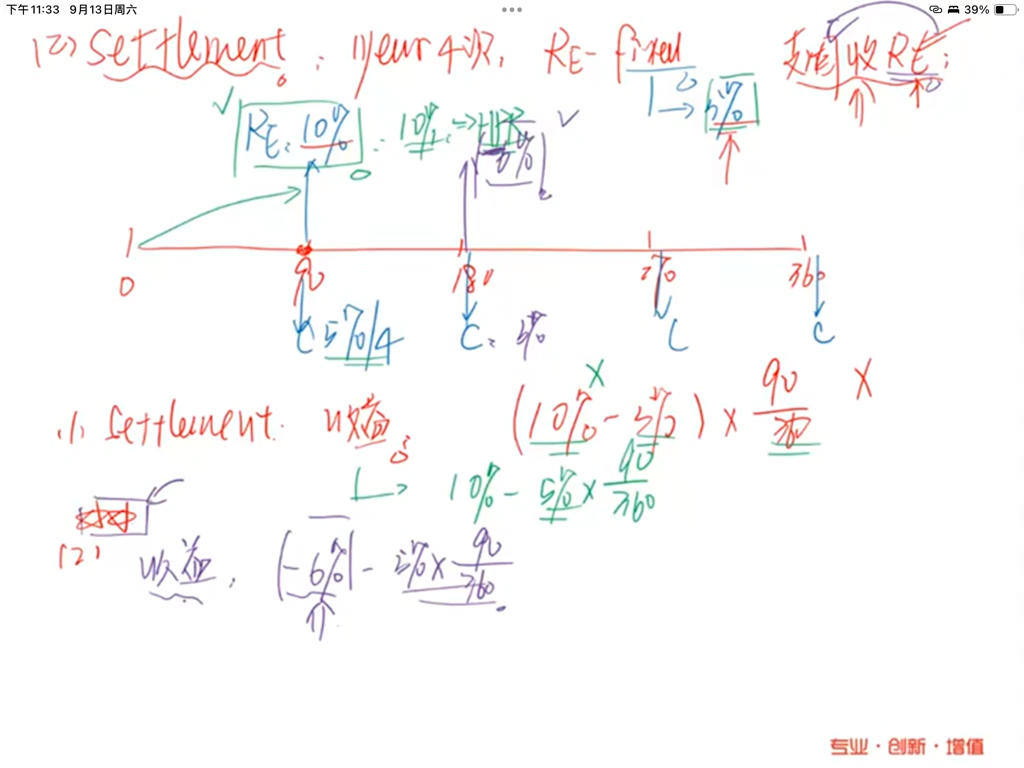 下午11:33 9月13日周六
39%
(2) Settlement: 1year 4次, RE-fixed 支固收RE;
5%
RE: 10% 10% ⇒
0 90 180 270 360
C 5%/4 C: 5% C C
(1) Settlement. 收益: (10% - 5%) × 90/360 ×
10% - 5% × 90/360
(2) 收益: (-6%) - 5% × 90/360
专业·创新·增值